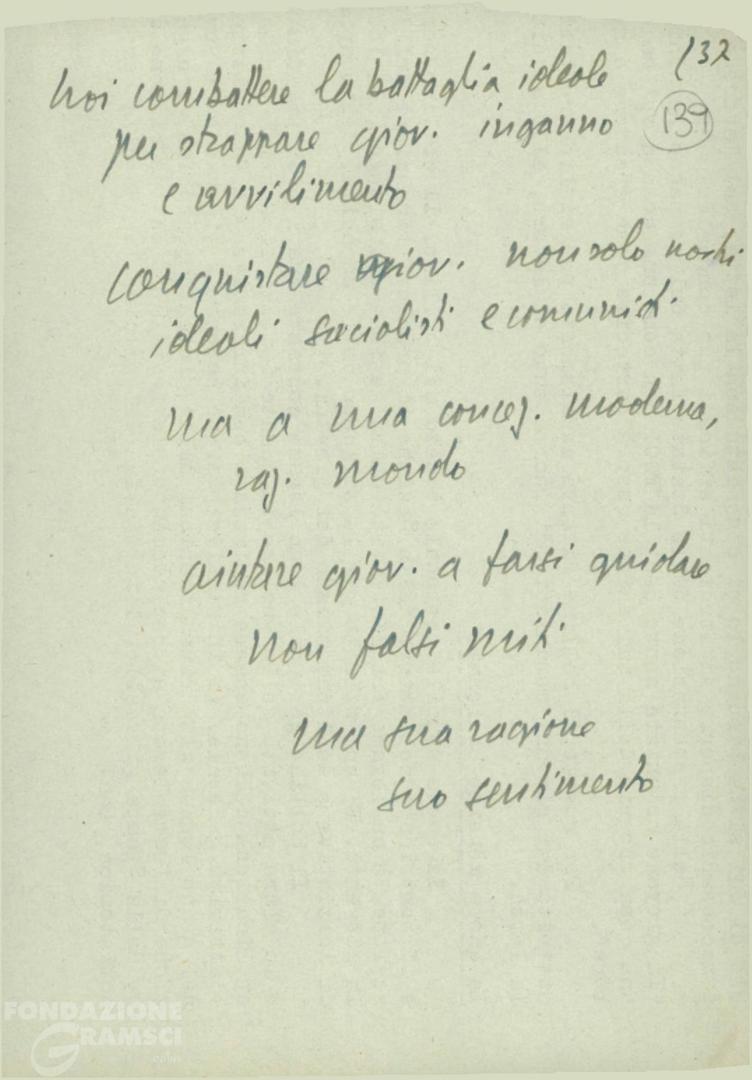 132
139
noi combattere la battaglia ideale
per strappare giov. inganno
e avvilimento
conquistare giov. non solo nostri
ideali socialisti e comunisti.
ma a una concez. moderna,
raz. mondo
aiutare giov. a farsi guidare
non falsi miti
ma sua ragione
suo sentimento
FONDAZIONE
GRAMSCI
onlus